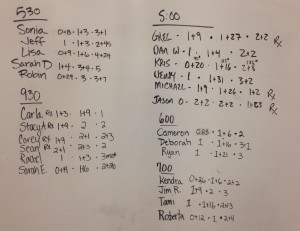 530
Sonia 0+8 · 1+3 · 3+1
Jeff 1 · 1+3 · 2+45
Lisa 0+9 · 1+6 · 4+24
Sarah D 1+4 · 3+4 · 5
Robin 0+24 · 3 · 3+7
930
Carla Rx 1+3 · 1+9 · 1
Stacy A Rx 1+9 · 2 · 2
Corey Rx 1+9 · 2+1 · 2+3
Sean Rx 2+1 · 2+3 · 2
1 · 1+3 ·
Sarah E. 0+9 · 1+6 ·
5:00
GREG - 1+9 · 1+27 · 2+2 Rx
DAN W - 1 · 1+4 · 2+2
KRIS - 0+20 · 1+16 ·
HENRY - 1 · 1+31 · 3+2
MICHAEL - 1+9 · 1+26 · 1+2 Rx
JASON 0 - 2+2 · 2+2 · 1+83 Rx
600
Cameron · 1+6 · 2
Deborah 1 · 1+16 · 3+1
Ryan 1 · 1+21 · 3
700
Kendra 0+26 · 1+6 · 2+2
Jim R. 1+9 · 2 · 3
Tami 1 · 1+16 · 2+3
Roberta 0+12 · 1 · 2+4